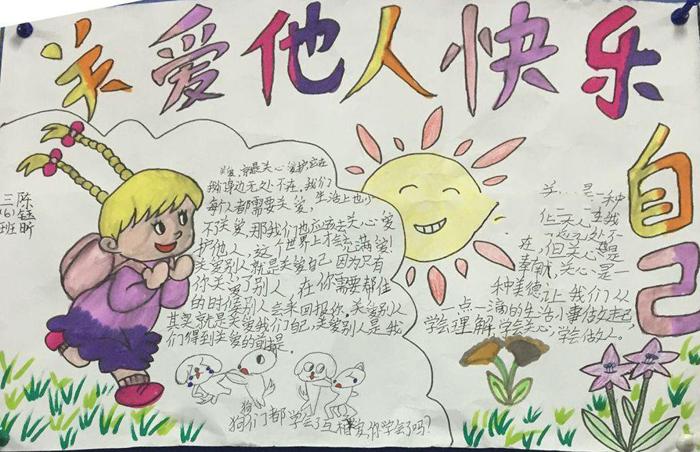 关爱他人快乐
自己
三(6)班
陈钰昕
关爱,就是关心爱护它在
我们身边无处不在,我们
每个人都需要关爱,生活上也少
不了关爱,那我们也应该去关心爱
护他人,这个世界上才会充满爱!
关爱别人就是关爱自己,因为只有
你关爱了别人,在你需要帮住
的时候别人会来回报你,关爱别人
其实就是关爱我们自己,关爱别人是我
们得到关爱的前提.
狗狗们都学会了互相爱,你学会了吗?
关 是一种
但
无处不
在,但关心是
幸福,关心是一
种美德,让我们从
一点一滴的生活小事做起,
学会理解,学会关心,学会做人。